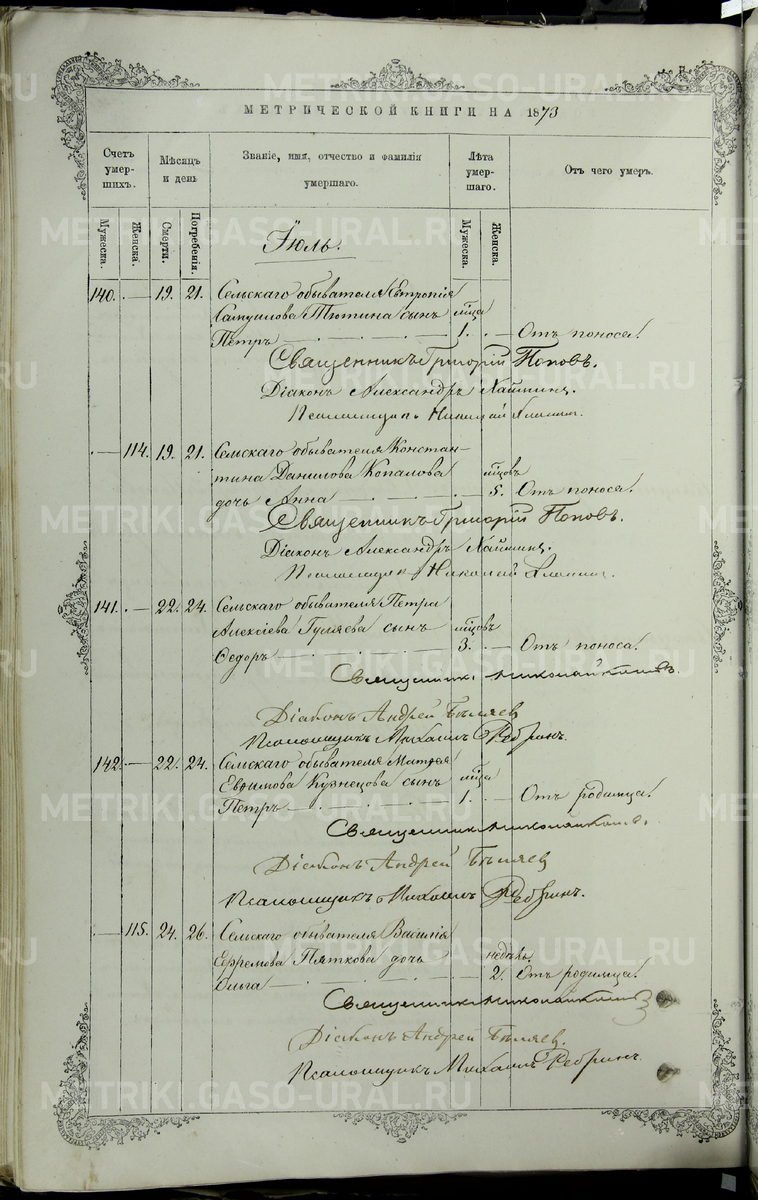 МЕТРИЧЕСКОЙ КНИГИ НА 1873
Счетъ умер-шихъ.
Мѣсяцъ и день
Званіе, имя, отчество и фамилія умершаго.
Лѣта умер-шаго.
Отъ чего умеръ.
Мужеска. Женска. Смерти. Погребенія. Мужеска. Женска.
Іюль.
140. — 19. 21. Сельскаго обывателя
Тютина сынъ мѣсца
Петръ 1. — Отъ поноса!
Священникъ Григорій Поповъ.
Діаконъ Александръ
Псаломщикъ Николай
— 114. 19. 21. Сельскаго обывателя Констан-
тина Данилова Копалова мѣсцовъ
дочь Анна 5. Отъ поноса!
Священникъ Григорій Поповъ.
Діаконъ Александръ
Псаломщикъ Николай
141. — 22. 24. Сельскаго обывателя Петра
Алексіева Гуляева сынъ мѣсцовъ
Ѳедоръ 3. — Отъ поноса!
Священникъ Николай
Діаконъ Андрей Бѣляев
Псаломщикъ Михаилъ Ребринъ.
142. — 22. 24. Сельскаго обывателя Матфея
Евфимова Кузнецова сынъ мѣсца
Петръ 1. — Отъ родимца!
Священникъ Николай
Діаконъ Андрей Бѣляев
Псаломщикъ Михаилъ Ребринъ.
— 115. 24. 26. Сельскаго обывателя Василія
Ефремова Пяткова дочь недѣль
Ольга 2. Отъ родимца!
Священникъ Николай
Діаконъ Андрей Бѣляев.
Псаломщикъ Михаилъ Ребринъ.
METRIKI.GASO-URAL.RU